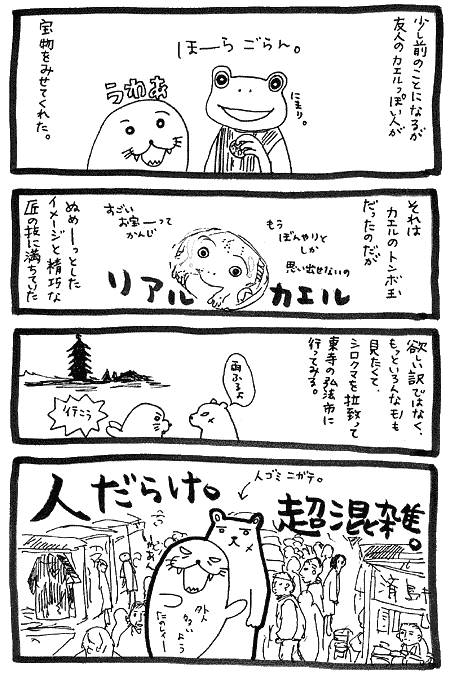 少し前のことになるが
友人のカエルっぽい人が
宝物をみせてくれた。
ほーら ごらん。
にまり。
うわあ
それは
カエルのトンボ玉
だったのだが
もう
ぼんやりと
しか
思い出せないの
すごい
お宝ーって
かんじ
リアル カエル
ぬめーっとした
イメージと精巧な
匠の技に満ちていた
欲しい訳ではなく、
もっといろんなモノも
見たくて、
シロクマを拉致って
東寺の弘法市に
行ってみる。
雨ふるよ
行こう
人だらけ。
人ゴミ ニガテ。
超混雑。